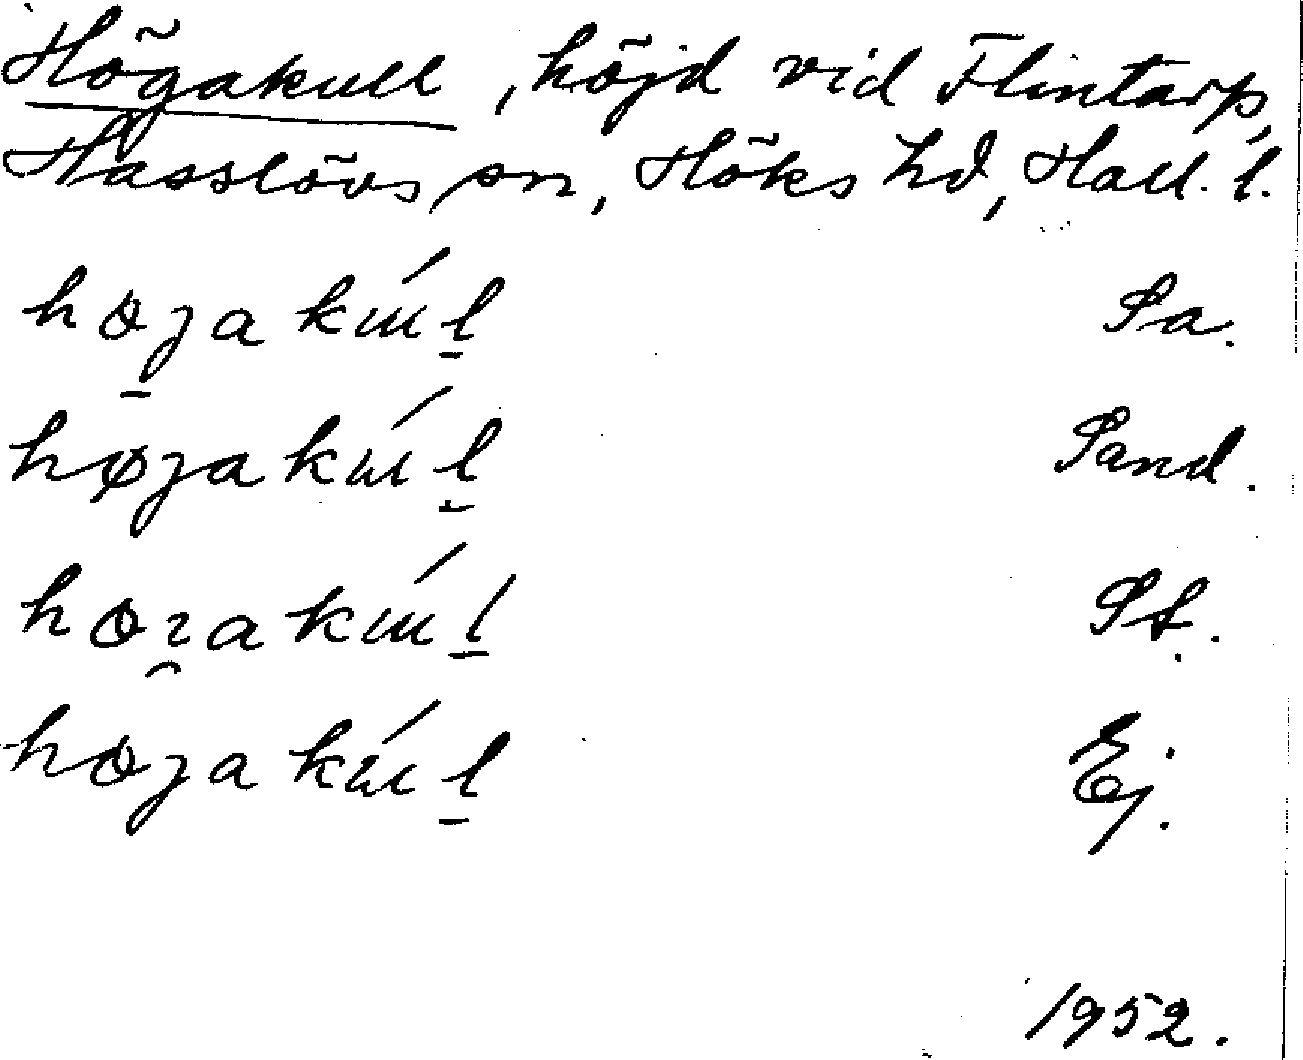 Högakull, höjd vid Flintarp,
Hasslövs sn, Höks hd, Hall. l.
højakúl̲ Sa.
højakúl̲ Sand.
høɿakúl̲ St.
højakúl̲ Ej.
1952.